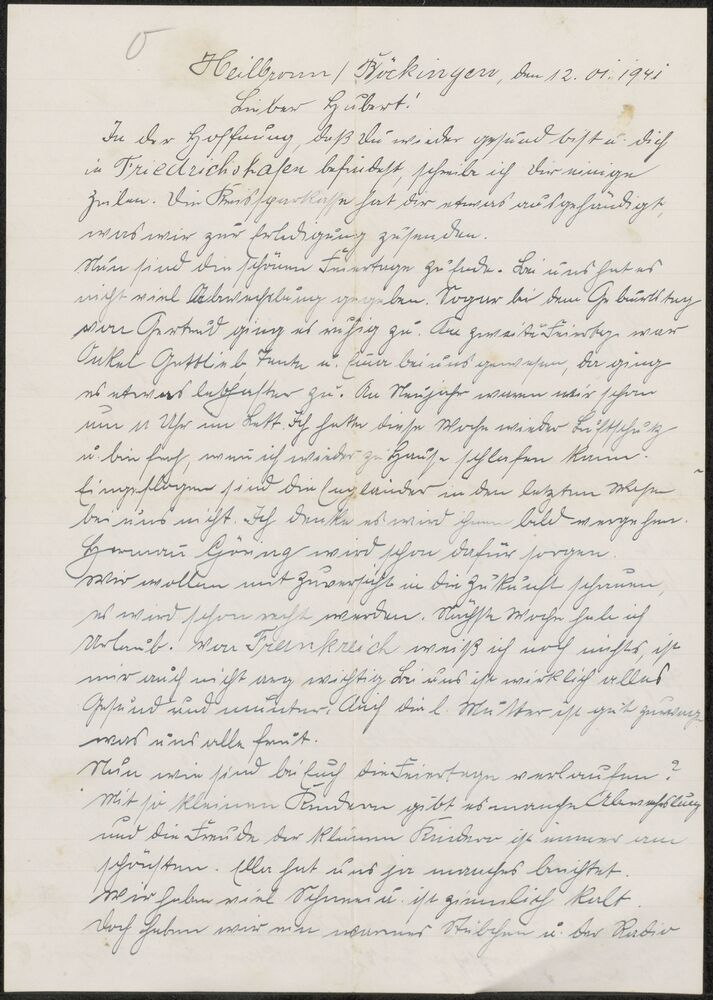 Heilbronn / Böckingen, den 12. 01. 1941
Lieber Hubert!
In der Hoffnung, daß Du wieder gesund bist u. dich
in Friedrichshafen befindest, schreibe ich Dir einige
Zeilen. Die Kreissparkasse hat dir etwas ausgehändigt,
was wir zur Erledigung zusenden.
Nun sind die schönen Feiertage zu Ende. Bei uns hat es
nicht viel Abwechslung gegeben. Sogar bei dem Geburtstag
von Gertrud ging es ruhig zu. Am zweiten Feiertag war
Onkel Gottlieb, Tante u. bei uns gewesen, da ging
es etwas lebhafter zu. An Neujahr waren wir schon
um 11 Uhr im Bett. Ich hatte diese Woche wieder Luftschutz
u. bin froh, wenn ich wieder zu Hause schlafen kann.
Eingeflogen sind die Engländer in den letzten Wochen
bei uns nicht. Ich denke es wird ihnen bald vergehen.
Hermann Göring wird schon dafür sorgen.
Wir wollen mit Zuversicht in die Zukunft schauen,
es wird schon recht werden. Nächste Woche habe ich
Urlaub. Von Frankreich weiß ich noch nichts, ist
mir auch nicht arg wichtig. Bei uns ist wirklich alles
Gesund und munter. Auch die l. Mutter ist gut zuwege
was uns alle freut.
Nun wie sind bei Euch die Feiertage verlaufen?
Mit so kleinen Kindern gibt es manche Abwechslung
und die Freude der kleinen Kinder ist immer am
schönsten. Ella hat uns ja manches berichtet.
Wir haben viel Schnee u. ist ziemlich kalt.
Doch haben wir ein warmes Stübchen u. der Radio